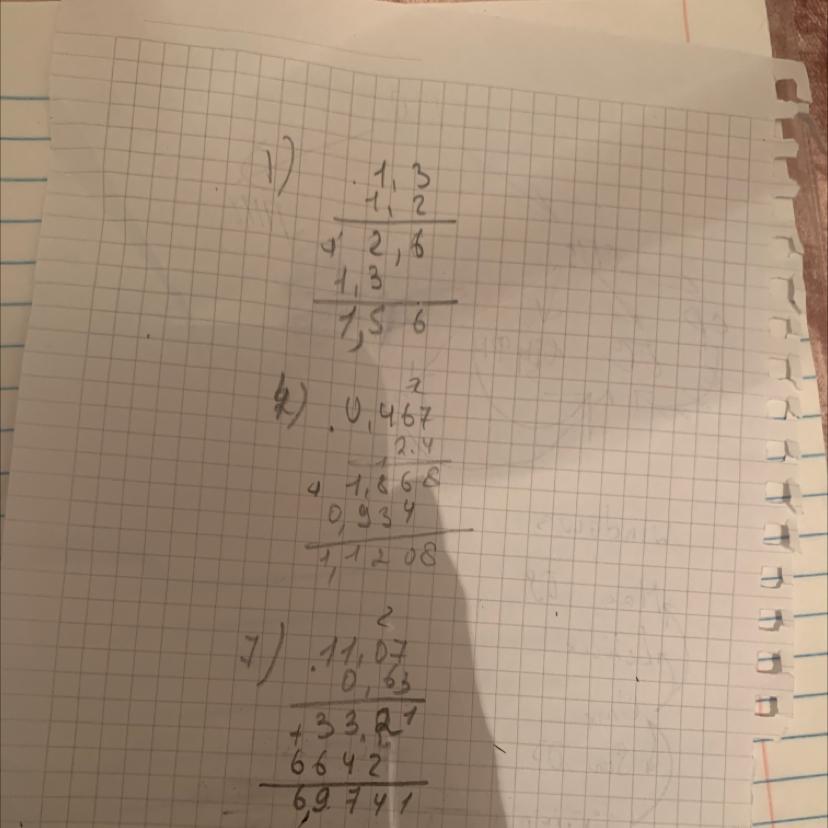 1) . 1, 3
1, 2
+ 2, 6
1, 3
1, 5 6
2
4) . 0, 4 6 7
2.4
+ 1, 8 6 8
0, 9 3 4
1, 1 2 0 8
2
7) . 1 1, 0 7
0, 6 3
+ 3 3, 2 1
6 6 4 2
6, 9 7 4 1